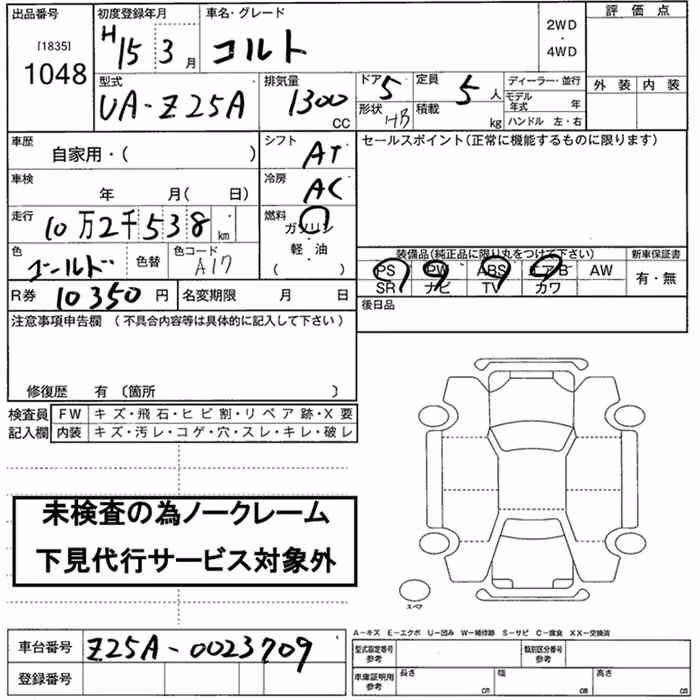 出品番号 初度登録年月 車名・グレード 評価点
[1835]
1048
H15 3月 コルト 2WD・4WD
外装 内装
型式 排気量 ドア 5 定員 5人 ディーラー・並行
UA-Z25A 1300 CC 形状 HB 積載 kg モデル年式 年
ハンドル 左・右
車歴 自家用・( ) シフト AT セールスポイント(正常に機能するものに限ります)
車検 年 月( 日) 冷房 AC
走行 10万2千538km 燃料 ガソリン
軽・油
( )
色 ゴールド 色替 色コード A17
装備品(純正品に限り丸をつけて下さい) 新車保証書
PS PW ABS エアB AW 有・無
SR ナビ TV カワ
R券 10350円 名変期限 月 日 後日品
注意事項申告欄(不具合内容等は具体的に記入して下さい)
修復歴 有〔箇所 〕
検査員 FW キズ・飛石・ヒビ割・リペア跡・X要
記入欄 内装 キズ・汚レ・コゲ・穴・スレ・キレ・破レ
未検査の為ノークレーム
下見代行サービス対象外
スペア
A-キズ E-エクボ U-凹み W-補修跡 S-サビ C-腐食 XX-交換済
車台番号 Z25A-0023709 型式指定番号 参考 類別区分番号 参考
登録番号 車庫証明用 参考 長さ cm 幅 cm 高さ cm